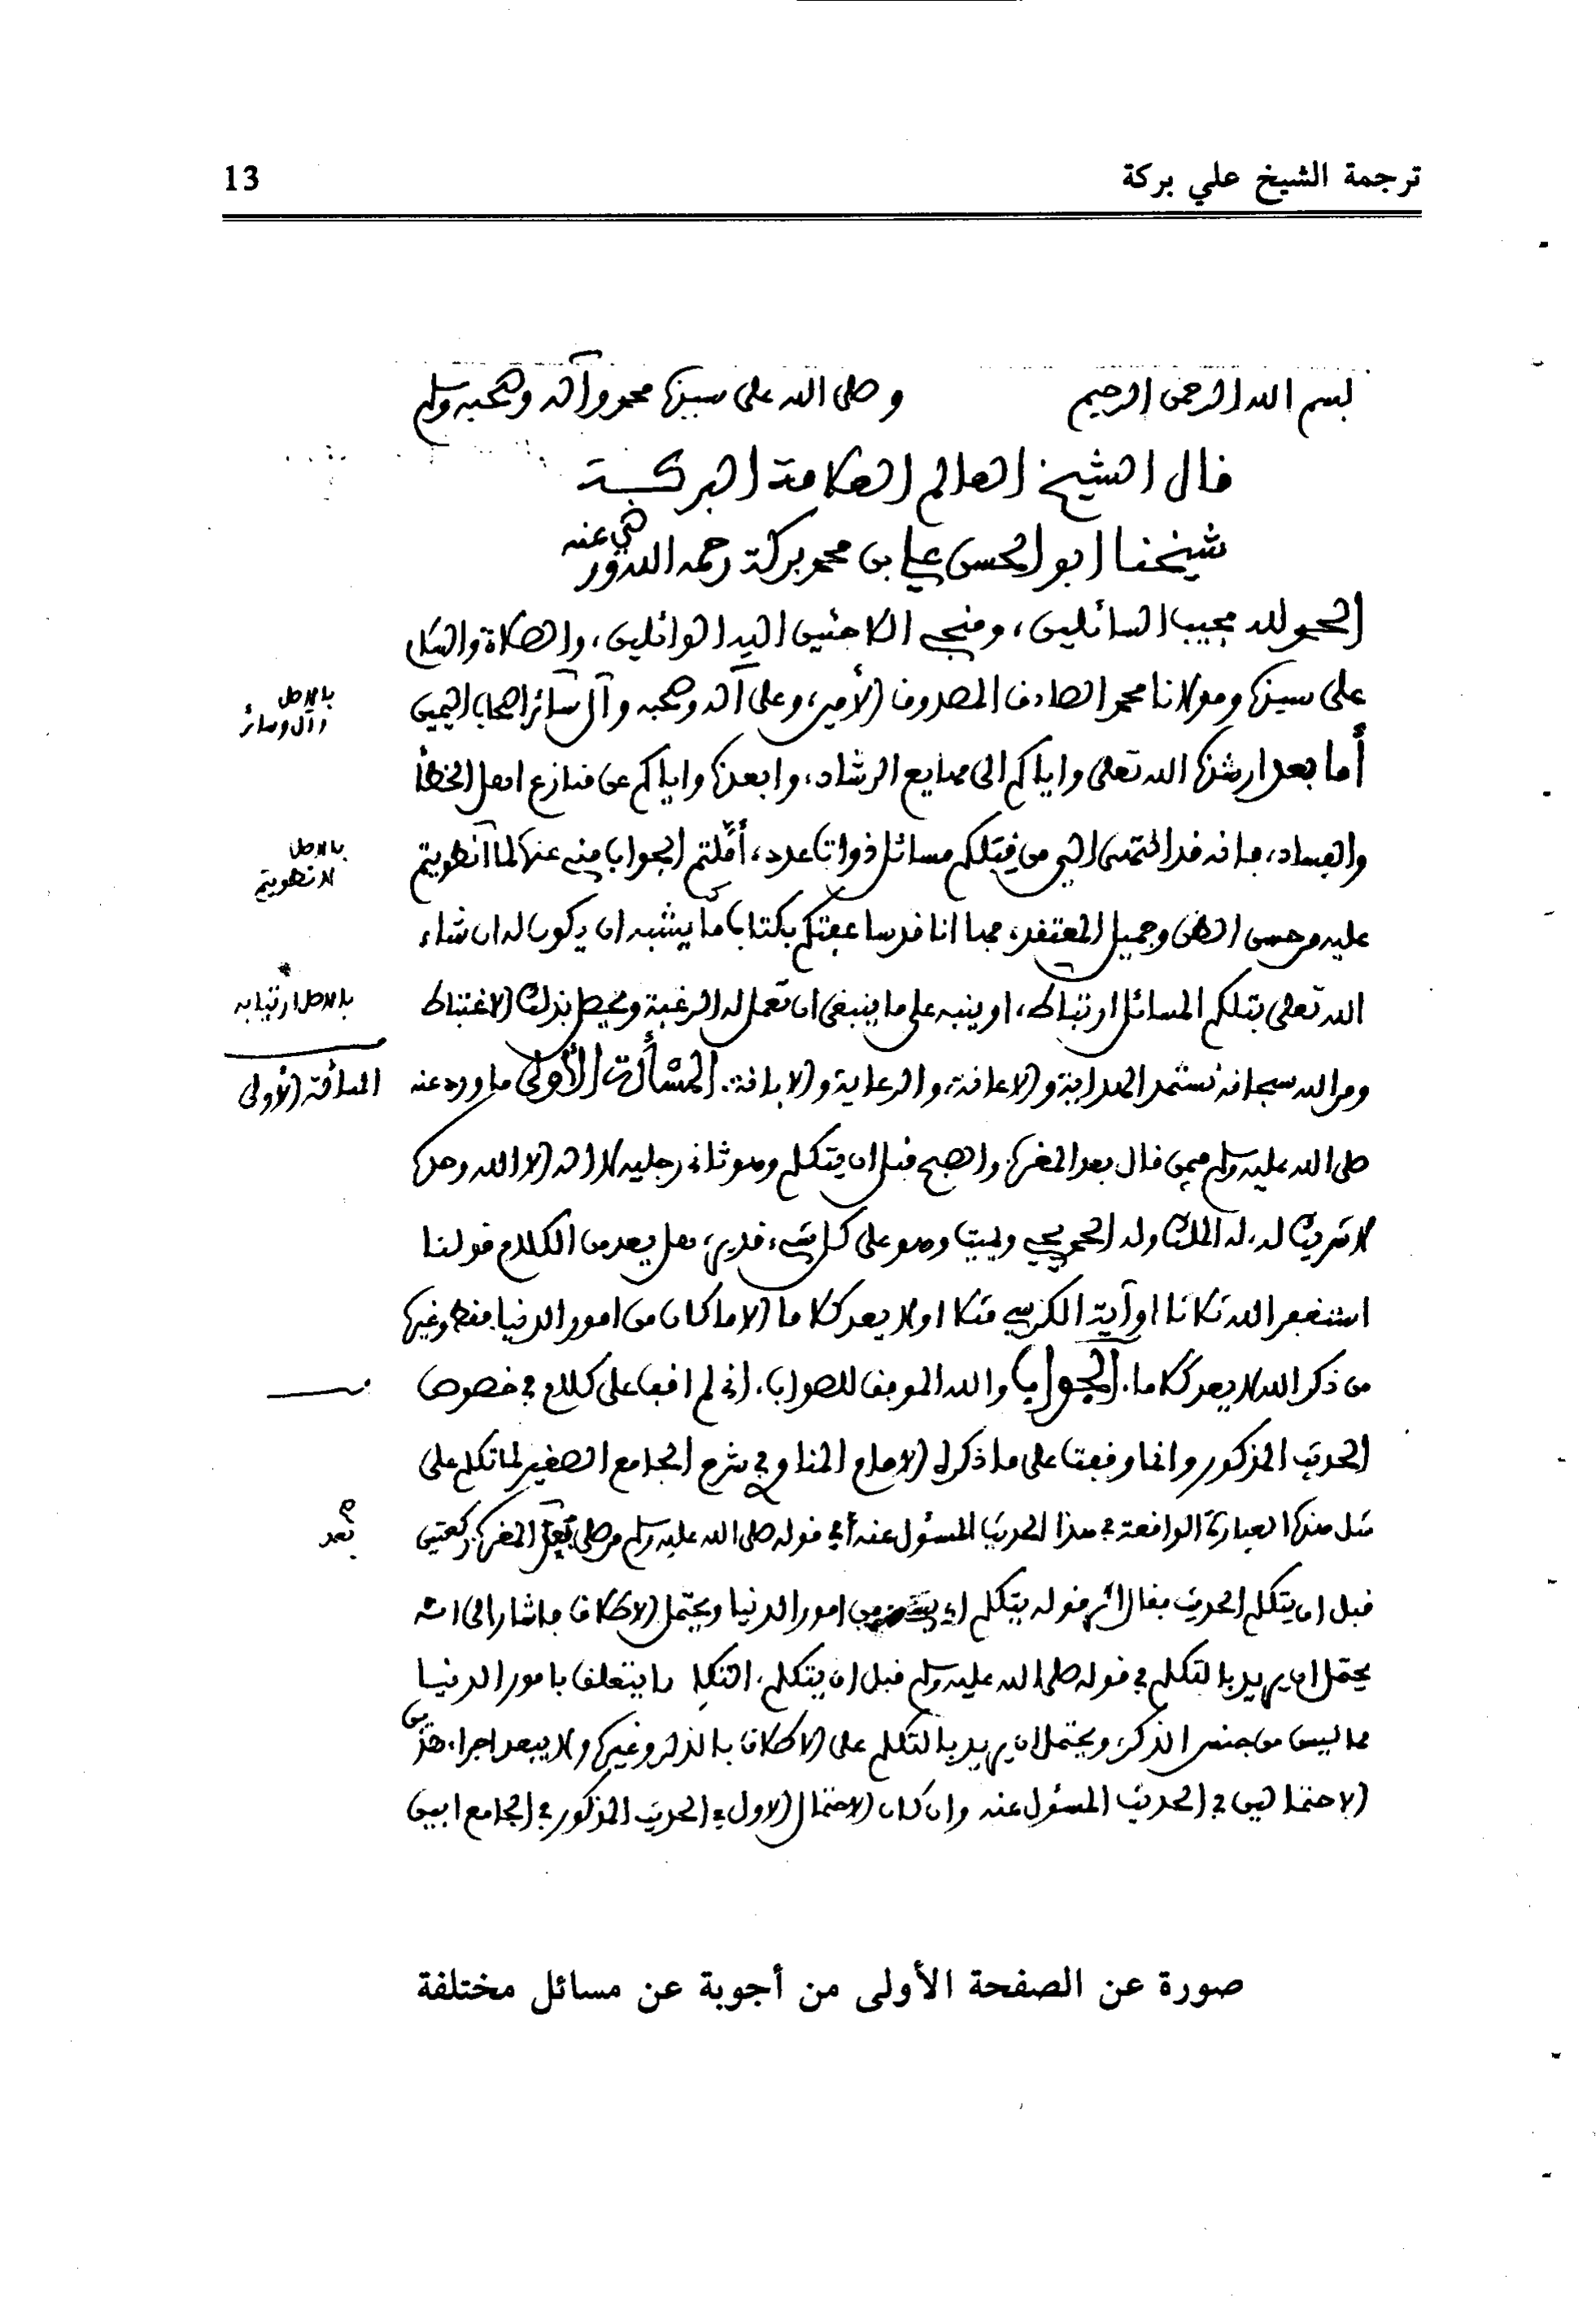 ترجمة الشيخ علي بركة
13
بسم الله الرحمن الرحيم وصلى الله على سيدنا محمد وآله وصحبه وسلم
قال الشيخ العالم العلامة البركة
شيخنا ابو الحسن علي بن محمد بركة رحمه الله ورضي عنه
الحمد لله مجيب السائلين، ومنجي اللاجئين اليه الوائلين، والصلاة والسلام
على سيدنا ومولانا محمد الصادق المصدوق الأمين، وعلى آله وصحبه وآل سائر اصحاب اليمين
بالاصل
وآل وسائر
أما بعد ارشدنا الله تعلى واياكم الى مهايع الرشاد، وابعدنا واياكم عن منازع اهل الخطأ
والفساد، فإنه قد التمس إلي من قبلكم مسائل ذوات عدد، أمّلتم الجواب مني عنها لما انطويتم
بالاصل
لا نطويتم
عليه من حسن الظن وجميل المعتقد، فها انا قد ساعفتكم بكتاب ما يشبه ان يكون له ان شاء
الله تعلى بتلكم المسائل ارتباط، او ينبه على ما ينبغي ان تعمل له الرغبة ويحصل بذلك الاغتباط
بالاصل ارتيابه
ومن الله سبحانه نستمد الهداية والاعانة، والرعاية والابانة. المسألة الأولى ما ورد عنه
المسألة الأولى
صلى الله عليه وسلم فيمن قال بعد المغرب والصبح قبل ان يتكلم وهو ثان رجليه لا اله الا الله وحده
لا شريك له، له الملك وله الحمد يحيي ويميت وهو على كل شيء قدير، هل يعد من الكلام قولنا
استغفر الله ثلاثا او آية الكرسي مثلا او لا يعد كلاما الا ما كان من امور الدنيا فقط وغيره
من ذكر الله لا يعد كلاما. الجواب والله الموفق للصواب. اني لم اقف على كلام في خصوص
الحديث المذكور وانما وقفت على ما ذكره الامام المناوي في شرح الجامع الصغير لما تكلم على
مثل هذه العبارة الواقعة في هذا الحديث المسئول عنه أي قوله صلى الله عليه وسلم من صلى بعد المغرب ركعتين
بعد
قبل ان يتكلم الحديث فقال اثر قوله يتكلم اي بشيء من امور الدنيا ويحتمل الاطلاق فاشار الى انه
يحتمل ان يريد بالتكلم في قوله صلى الله عليه وسلم قبل ان يتكلم، التكلم بما يتعلق بامور الدنيا
مما ليس من جنس الذكر، ويحتمل ان يريد بالتكلم على الاطلاق بالذكر وغيره ولا يبعد اجراء هذين
الاحتمالين في الحديث المسئول عنه وان كان الاحتمال الاول في الحديث المذكور في الجامع ابين
صورة عن الصفحة الأولى من أجوبة عن مسائل مختلفة